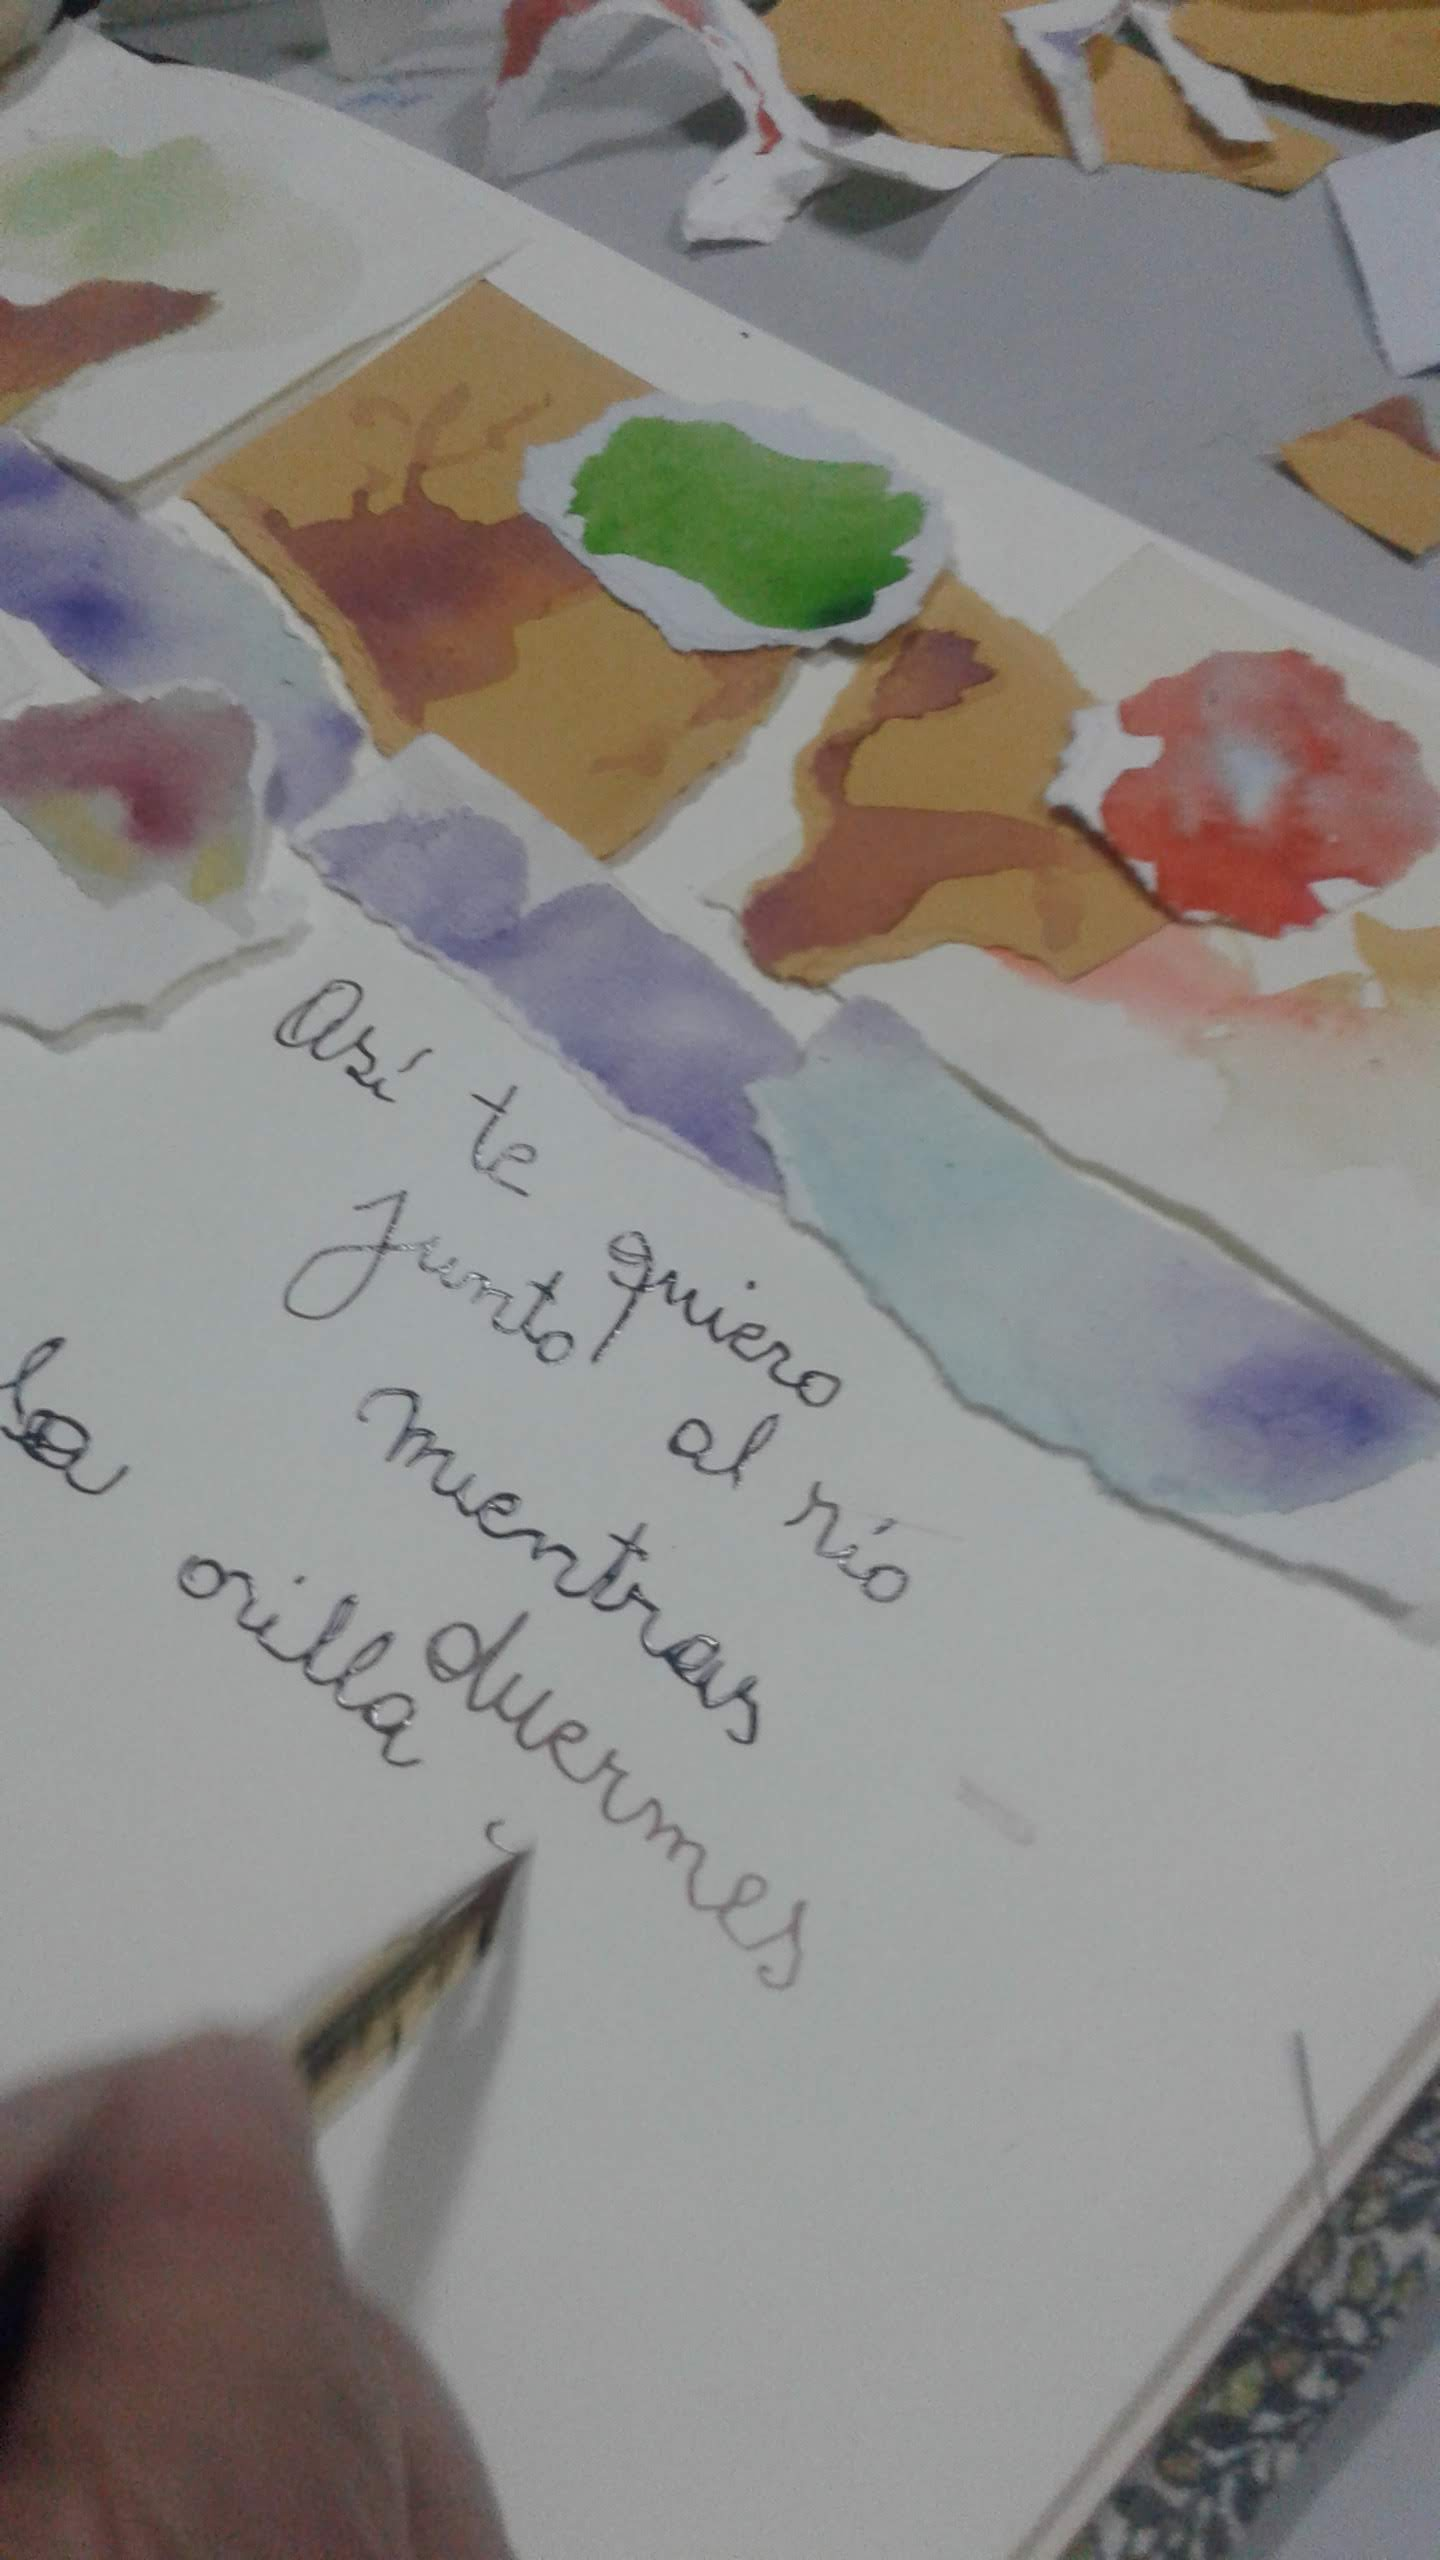 Así te quiero
Junto al río
mientras duermes
la orilla